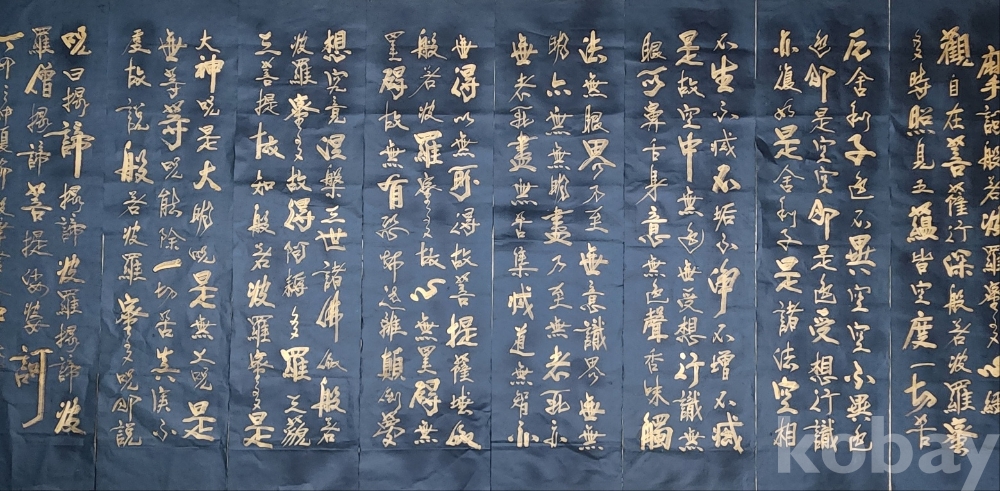 摩訶般若波羅蜜多心經
觀自在菩薩行深般若波羅蜜
多時照見五蘊皆空度一切苦
厄舍利子色不異空空不異色
色卽是空空卽是色受想行識
亦復如是舍利子是諸法空相
不生不滅不垢不淨不增不減
是故空中無色無受想行識無
眼耳鼻舌身意無色聲香味觸
法無眼界乃至無意識界無無
明亦無無明盡乃至無老死亦
無老死盡無苦集滅道無智亦
無得以無所得故菩提薩埵依
般若波羅蜜多故心無罣礙無
罣礙故無有恐怖遠離顚倒夢
想究竟涅槃三世諸佛依般若
波羅蜜多故得阿耨多羅三藐
三菩提故知般若波羅蜜多是
大神呪是大明呪是無上呪是
無等等呪能除一切苦眞實不
虛故說般若波羅蜜多呪卽說
呪曰揭諦揭諦波羅揭諦波
羅僧揭諦菩提娑婆訶
kobay